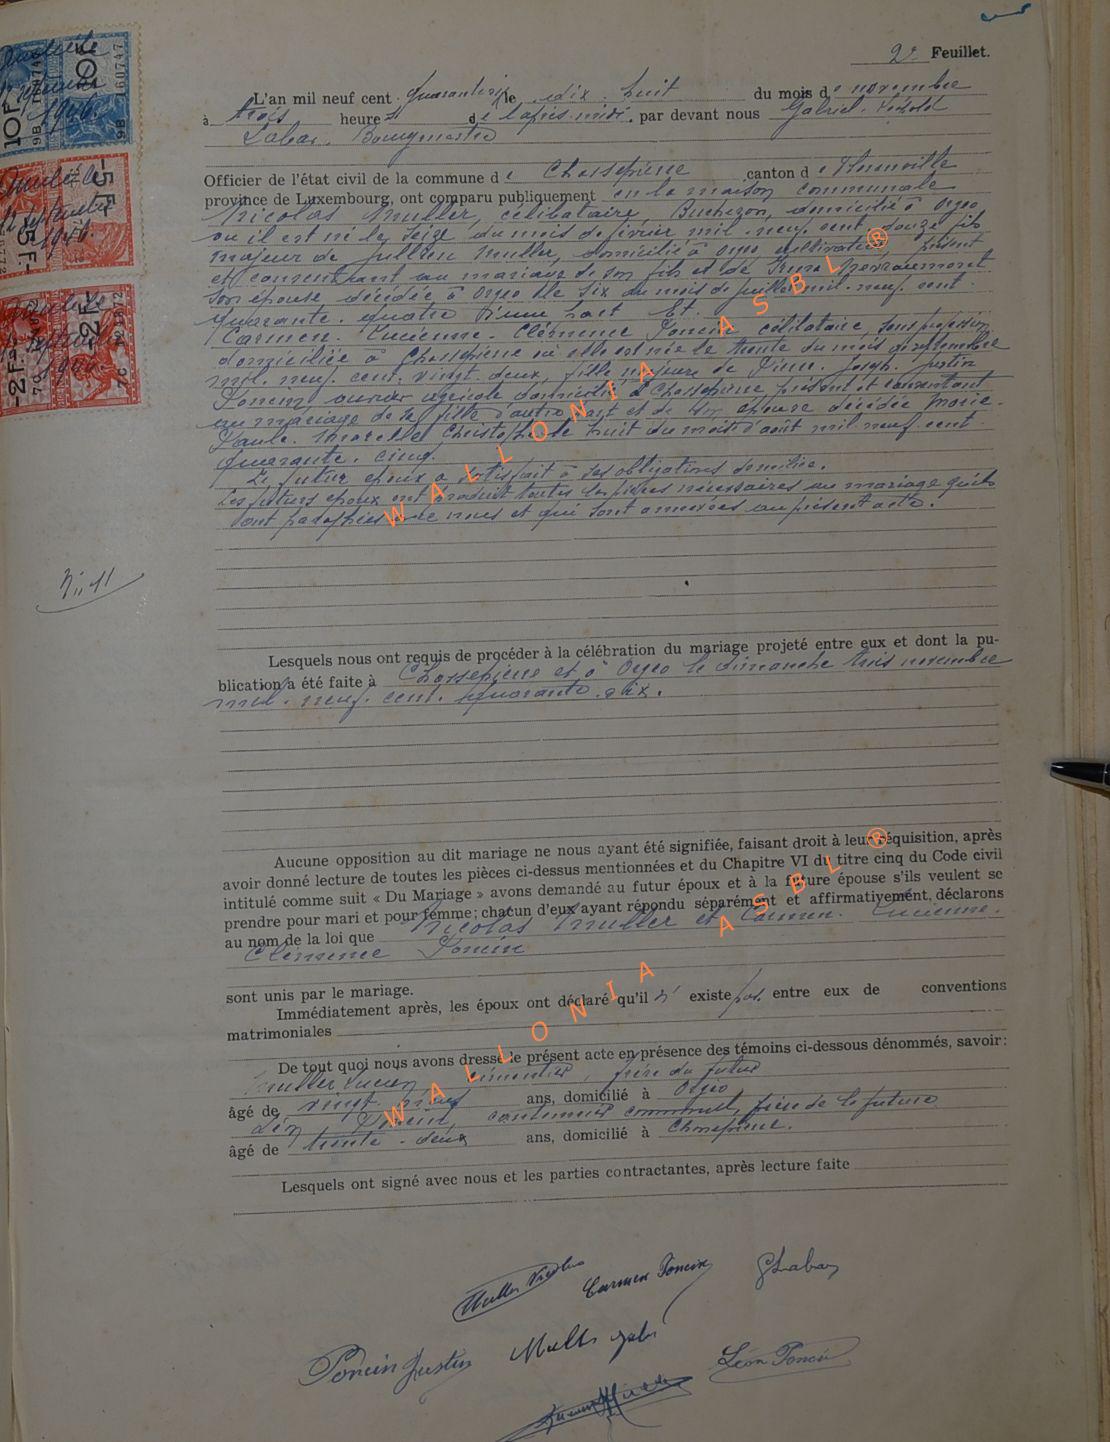 2e Feuillet.
L'an mil neuf cent quarante six le dix huit du mois de novembre
à trois heures de l'après-midi, par devant nous Gabriel
Labar, Bourgmestre
Officier de l'état civil de la commune de Chassepierre canton de Florenville
province de Luxembourg, ont comparu publiquement en la maison communale
Nicolas Muller, célibataire, Bucheron, domicilié à Orgeo
où il est né le seize du mois de février mil neuf cent douze fils
majeur de Muller, domicilié à Orgeo cultivateur, présent
et consentant au mariage de son fils et de
son épouse, décédée à Orgeo le six du mois de juillet mil neuf cent
quarante quatre d'une part Et
Carmen Lucienne Clémence Poncin célibataire, sans profession
domiciliée à Chassepierre où elle est née le trente du mois de septembre
mil neuf cent vingt deux, fille majeure de Pierre Joseph Justin
Poncin ouvrier agricole domicilié à Chassepierre présent et consentant
au mariage de sa fille d'autre part et de son épouse décédée Marie
Paule Christophe le huit du mois d'août mil neuf cent
quarante cinq.
Le futur époux a satisfait à ses obligations de milice.
Les futurs époux ont produit toutes les pièces nécessaires au mariage qu'ils
ont paraphées avec nous et qui sont annexées au présent acte.
N° 11
Lesquels nous ont requis de procéder à la célébration du mariage projeté entre eux et dont la pu-
blication a été faite à Chassepierre et à Orgeo le dimanche trois novembre
mil neuf cent quarante six.
Aucune opposition au dit mariage ne nous ayant été signifiée, faisant droit à leur réquisition, après
avoir donné lecture de toutes les pièces ci-dessus mentionnées et du Chapitre VI du titre cinq du Code civil
intitulé comme suit « Du Mariage » avons demandé au futur époux et à la future épouse s'ils veulent se
prendre pour mari et pour femme; chacun d'eux ayant répondu séparément et affirmativement, déclarons
au nom de la loi que Nicolas Muller et Carmen Lucienne
Clémence Poncin
sont unis par le mariage.
Immédiatement après, les époux ont déclaré qu'il n'existe pas entre eux de conventions
matrimoniales
De tout quoi nous avons dressé le présent acte en présence des témoins ci-dessous dénommés, savoir:
Muller Lucien, frère du futur
âgé de vingt neuf ans, domicilié à Orgeo
Léon Poncin, cantonnier communal, frère de la future
âgé de trente deux ans, domicilié à Chassepierre.
Lesquels ont signé avec nous et les parties contractantes, après lecture faite
Muller Nicolas Carmen Poncin GLabar
Poncin Justin Muller Léon Poncin
WALLONIA ASBL®
WALLONIA ASBL®
10F
5F
2F